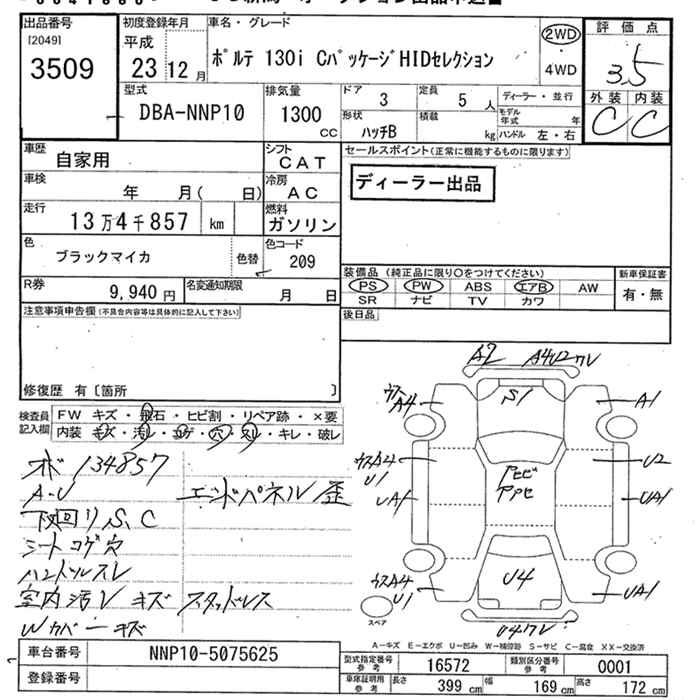 出品番号
[2049]
3509
初度登録年月
平成
23 12 月
車名・グレード
ポルテ 130i CパッケージHIDセレクション
2WD
・
4WD
評価点
3.5
外装 内装
C C
型式
DBA-NNP10
排気量
1300
cc
ドア
3
定員
5 人
形状
ハッチB
積載
kg
ディーラー・並行
モデル年式 年
ハンドル 左・右
車歴
自家用
シフト
CAT
車検
年 月( 日)
冷房
AC
走行
13万4千857 km
燃料
ガソリン
色
ブラックマイカ
色替
色コード
209
R券
9,940 円
名変通知期限
月 日
セールスポイント(正常に機能するものに限ります)
ディーラー出品
装備品 (純正品に限り○をつけてください)
PS PW ABS エアB AW
SR ナビ TV カワ
新車保証書
有・無
後日品
注意事項申告欄(不具合内容等は具体的に記入して下さい)
修復歴 有〔箇所 〕
検査員記入欄
FW キズ・飛石・ヒビ割・リペア跡・×要
内装 キズ・汚レ・コゲ・穴・スレ・キレ・破レ
ホボ 134857
A・U エンドパネル歪
下回りS、C
シートコゲ穴
ハンドルスレ
室内汚レ キズ スタッドレス
Wカバーキズ
A2 A4U2ワレ
S1
ウスA4 A1
ウスA4 U1 U2
UA1 UA1
ウスA4 U1 UA1
U4
U4ワレ
スペア
A-キズ E-エクボ U-凹み W-補修跡 S-サビ C-腐食 XX-交換済
車台番号
NNP10-5075625
登録番号
型式指定番号 参考
16572
類別区分番号 参考
0001
車庫証明用 参考
長さ 399 cm
幅 169 cm
高さ 172 cm